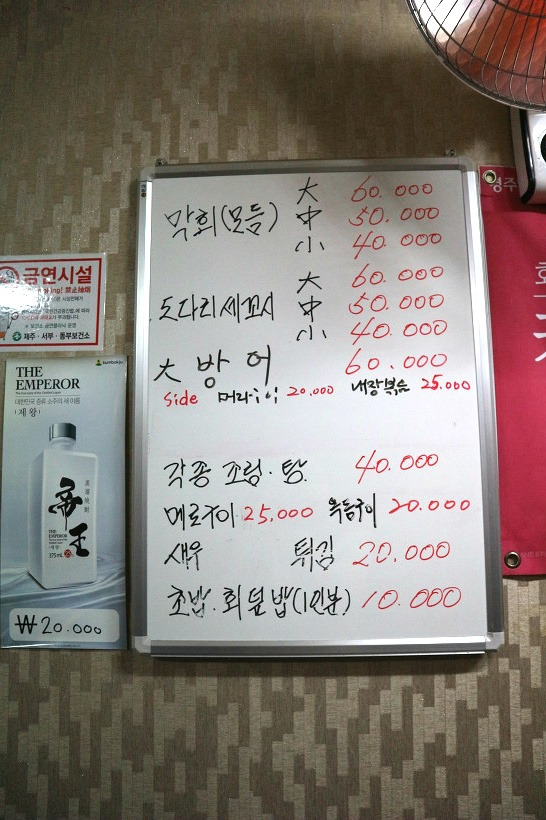 막회(모듬) 大 60.000
中 50.000
小 40.000
도다리세꼬시 大 60.000
中 50.000
小 40.000
大 방어 60.000
Side 머리구이 20.000 내장볶음 25.000
각종 조림·탕 40.000
메로구이 25,000 옥돔구이 20.000
새우 튀김 20.000
초밥.회덮밥(1인분) 10.000
금연시설
禁止抽烟
제주·서부·동부보건소
kumbokju
THE
EMPEROR
대한민국 증류 소주의 새 이름
(제왕)
帝王
THE
EMPEROR
375 mL
₩ 20.000
경주